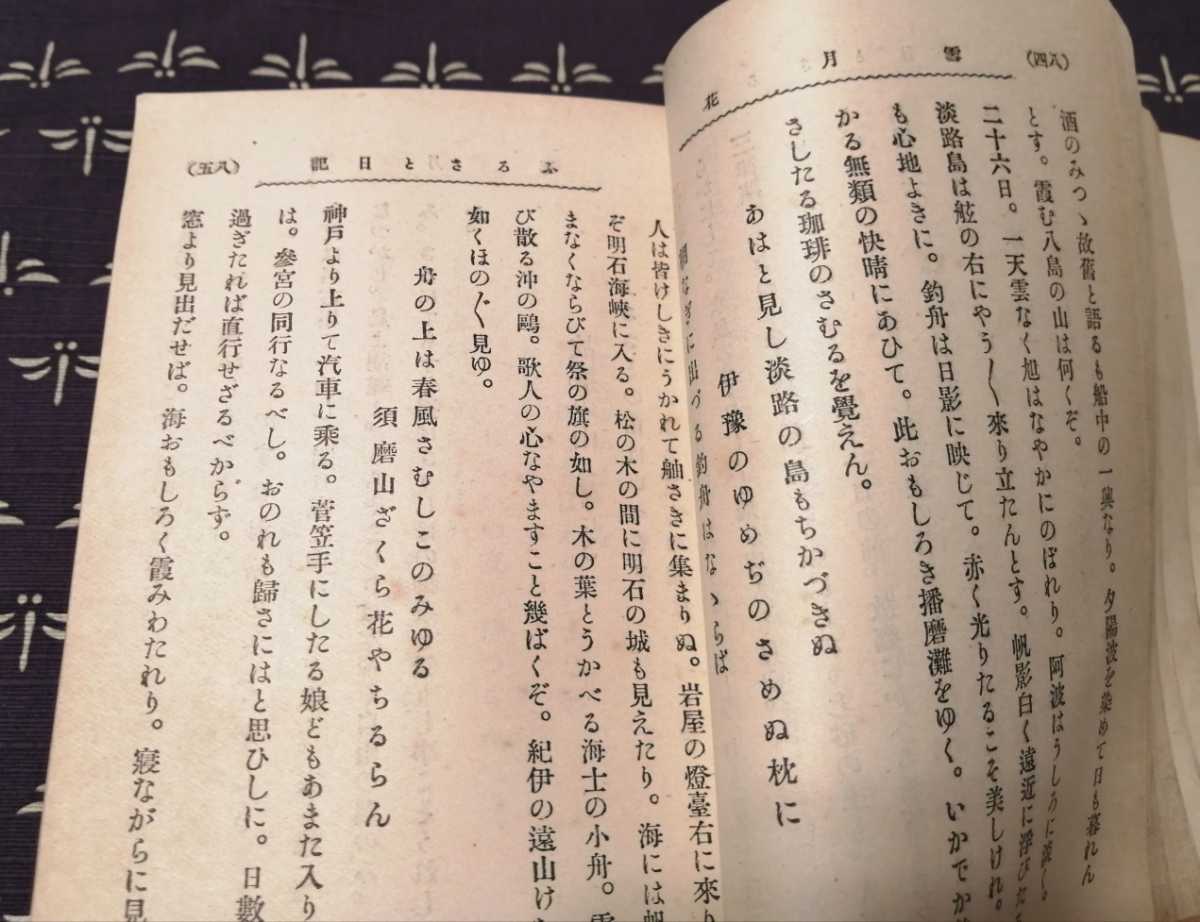 （八四）
雪月花
酒のみつゝ故舊と語るも船中の一興なり。夕陽波を染めて日も暮れん
とす。霞む八島の山は何くぞ。
二十六日。一天雲なく旭はなやかにのぼれり。阿波はうしろに淡く。
淡路島は舷の右にやう〳〵來り立たんとす。帆影白く遠近に浮びた
も心地よきに。釣舟は日影に映じて。赤く光りたるこそ美しけれ。
かる無類の快晴にあひて。此おもしろき播磨灘をゆく。いかでか
さしたる珈琲のさむるを覺えん。
あはと見し淡路の島もちかづきぬ
伊豫のゆめぢのさめぬ枕に
に出づる釣舟はなゝらば
ふるさと日記
（八五）
人は皆けしきにうかれて舳さきに集まりぬ。岩屋の燈臺右に來り
ぞ明石海峽に入る。松の木の間に明石の城も見えたり。海には帆
まなくならびて祭の旗の如し。木の葉とうかべる海士の小舟。雪
び散る沖の鷗。歌人の心なやますこと幾ばくぞ。紀伊の遠山け
如くほの〴〵見ゆ。
舟の上は春風さむしこのみゆる
須磨山ざくら花やちるらん
神戸より上りて汽車に乘る。菅笠手にしたる娘どもあまた入り
は。參宮の同行なるべし。おのれも歸さにはと思ひしに。日數
過ぎたれば直行せざるべからず。
窓より見出だせば。海おもしろく霞みわたれり。寢ながらに見